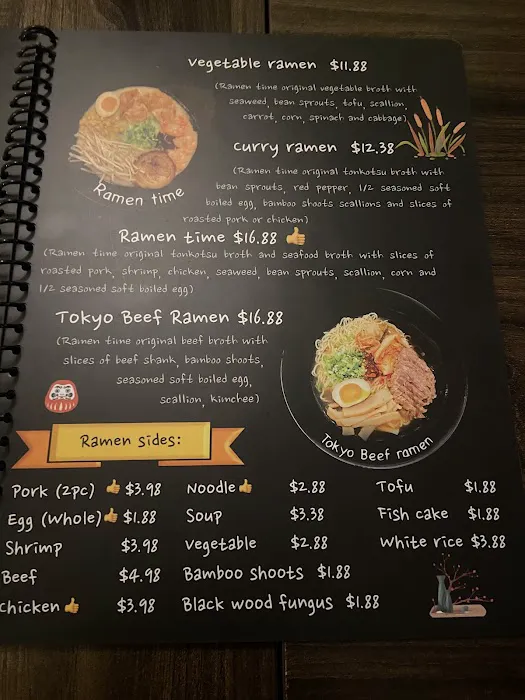 Vegetable ramen $11.88
(Ramen time original vegetable broth with
seaweed, bean sprouts, tofu, scallion,
carrot, corn, spinach and cabbage)
Curry ramen $12.38
(Ramen time original tonkotsu broth with
bean sprouts, red pepper, 1/2 seasoned soft
boiled egg, bamboo shoots scallions and slices of
roasted pork or chicken)
Ramen time
Ramen time $16.88
(Ramen time original tonkotsu broth and seafood broth with slices of
roasted pork, shrimp, chicken, seaweed, bean sprouts, scallion, corn and
1/2 seasoned soft boiled egg)
Tokyo Beef Ramen $16.88
(Ramen time original beef broth with
slices of beef shank, bamboo shoots,
seasoned soft boiled egg,
scallion, kimchee)
Tokyo Beef ramen
Ramen sides:
Pork (2pc) $3.98
Egg (Whole) $1.88
Shrimp $3.98
Beef $4.98
Chicken $3.98
Noodle $2.88
Soup $3.38
Vegetable $2.88
Bamboo shoots $1.88
Black wood fungus $1.88
Tofu $1.88
Fish cake $1.88
White rice $3.88